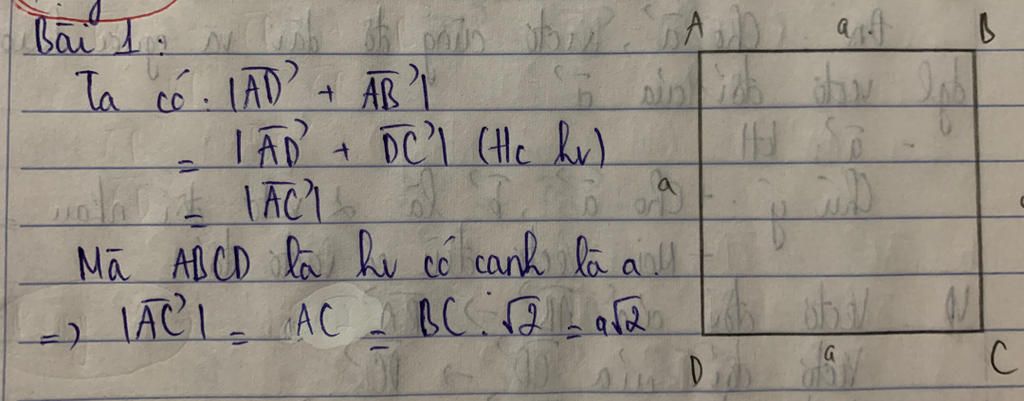 Bài 1:
A a B
Ta có: |AD⃗ + AB⃗|
= |AD⃗ + DC⃗| (Hc hv)
a
= |AC⃗|
Mà ABCD là hv có canh là a.
=> |AC⃗| = AC = BC . √2 = a√2
D a C